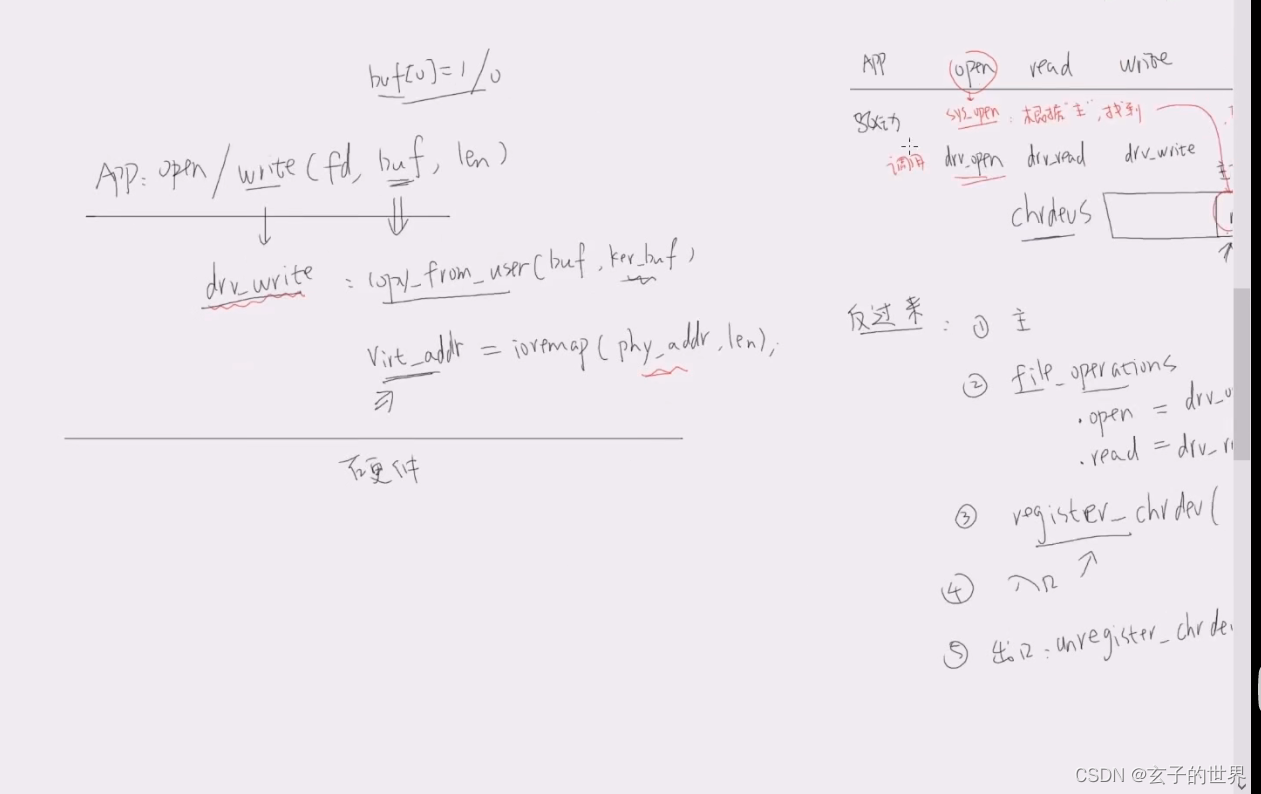 buf[0]=1/0
APP: open/write(fd, buf, len)
drv_write : copy_from_user(buf, ker_buf)
virt_addr = ioremap(phy_addr, len);
硬件
APP open read write
驱动 sys_open: 根据"主",找到
调用 drv_open drv_read drv_write
主
chrdevs
反过来: ① 主
② file_operations
.open = drv_o
.read = drv_r
③ register_chrdev(
④ 入口
⑤ 出口: unregister_chrde
CSDN @玄子的世界